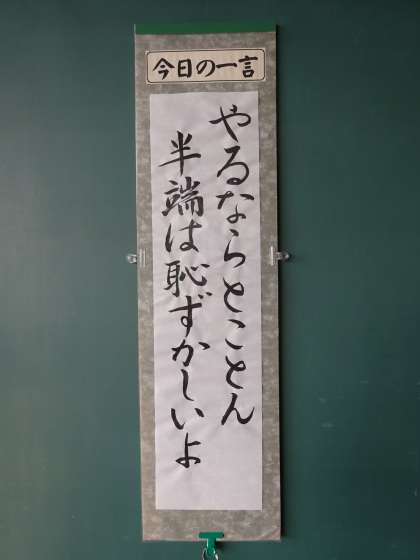 今日の一言
やるならとことん
半端は恥ずかしいよ